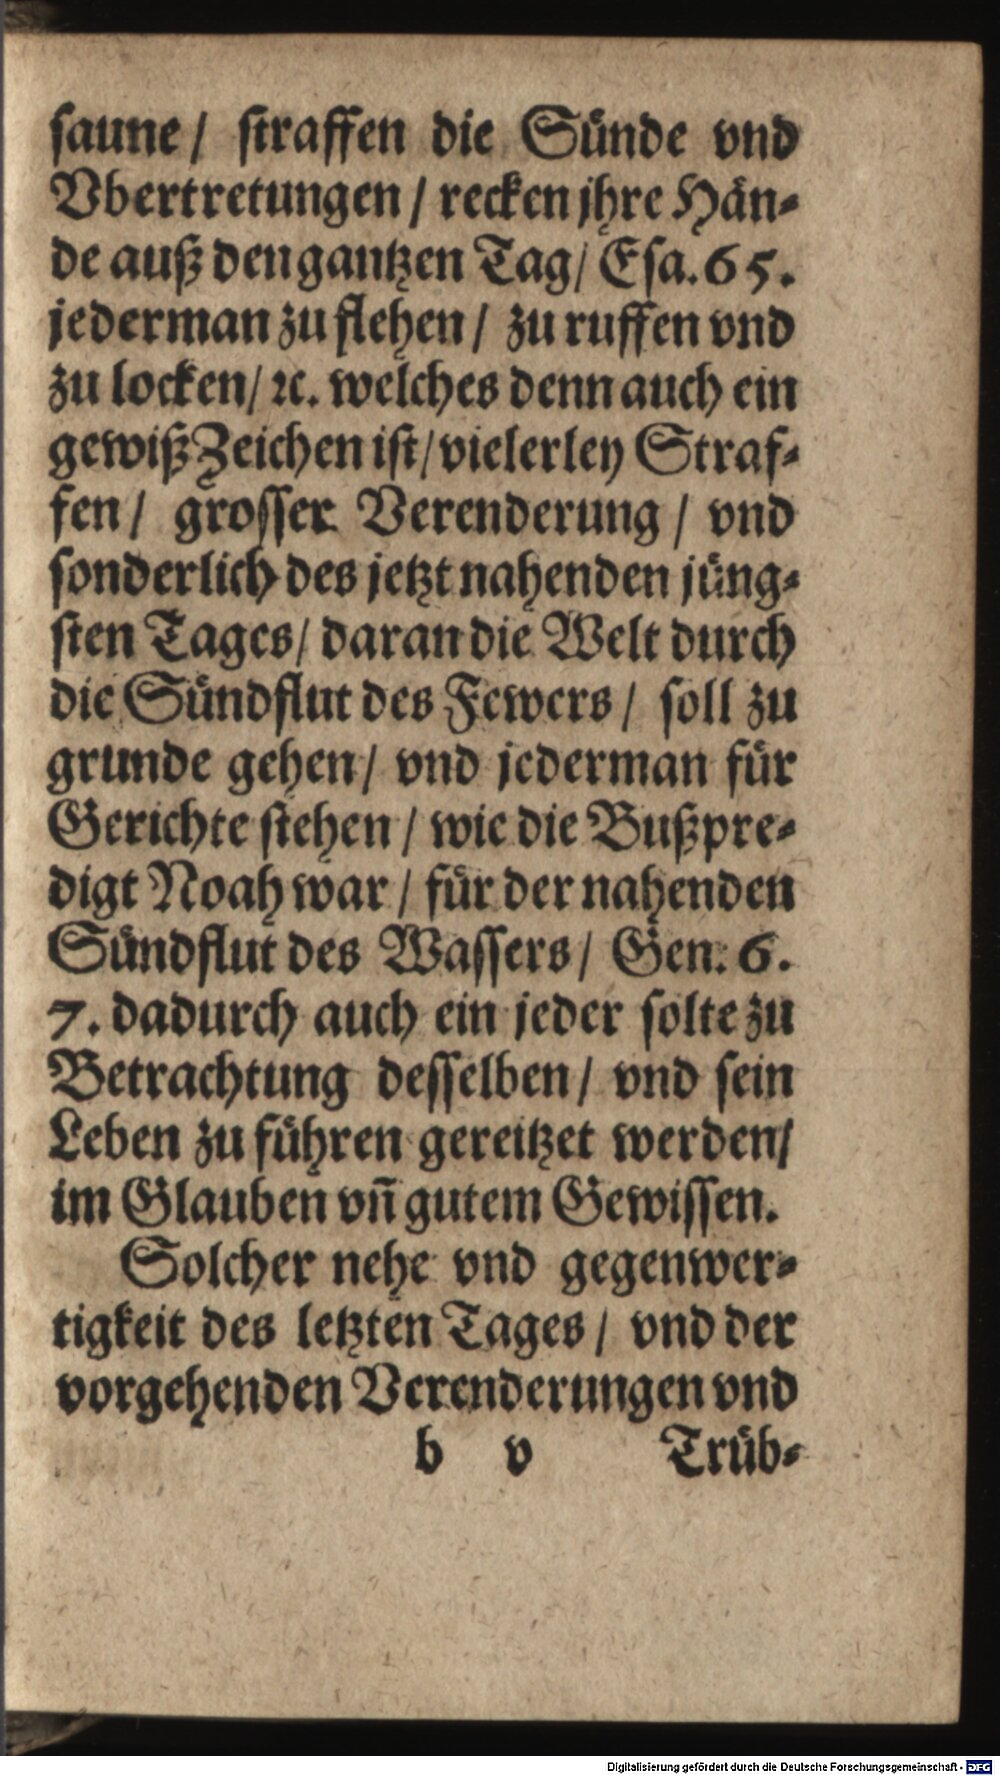 saune / straffen die Sünde vnd
Vbertretungen / recken jhre Hän-
de auß den gantzen Tag / Esa. 65.
jederman zu flehen / zu ruffen vnd
zu locken / ꝛc. welches denn auch ein
gewiß Zeichen ist / vielerley Straf-
fen / grosser Verenderung / vnd
sonderlich des jetzt nahenden jüng-
sten Tages / daran die Welt durch
die Sündflut des Fewers / soll zu
grunde gehen / vnd jederman für
Gerichte stehen / wie die Bußpre-
digt Noah war / für der nahenden
Sündflut des Wassers / Gen. 6.
7. dadurch auch ein jeder solte zu
Betrachtung desselben / vnd sein
Leben zu führen gereitzet werden /
im Glauben vñ gutem Gewissen.
Solcher nehe vnd gegenwer-
tigkeit des letzten Tages / vnd der
vorgehenden Verenderungen vnd
b v Trüb-
Digitalisierung gefördert durch die Deutsche Forschungsgemeinschaft - DFG